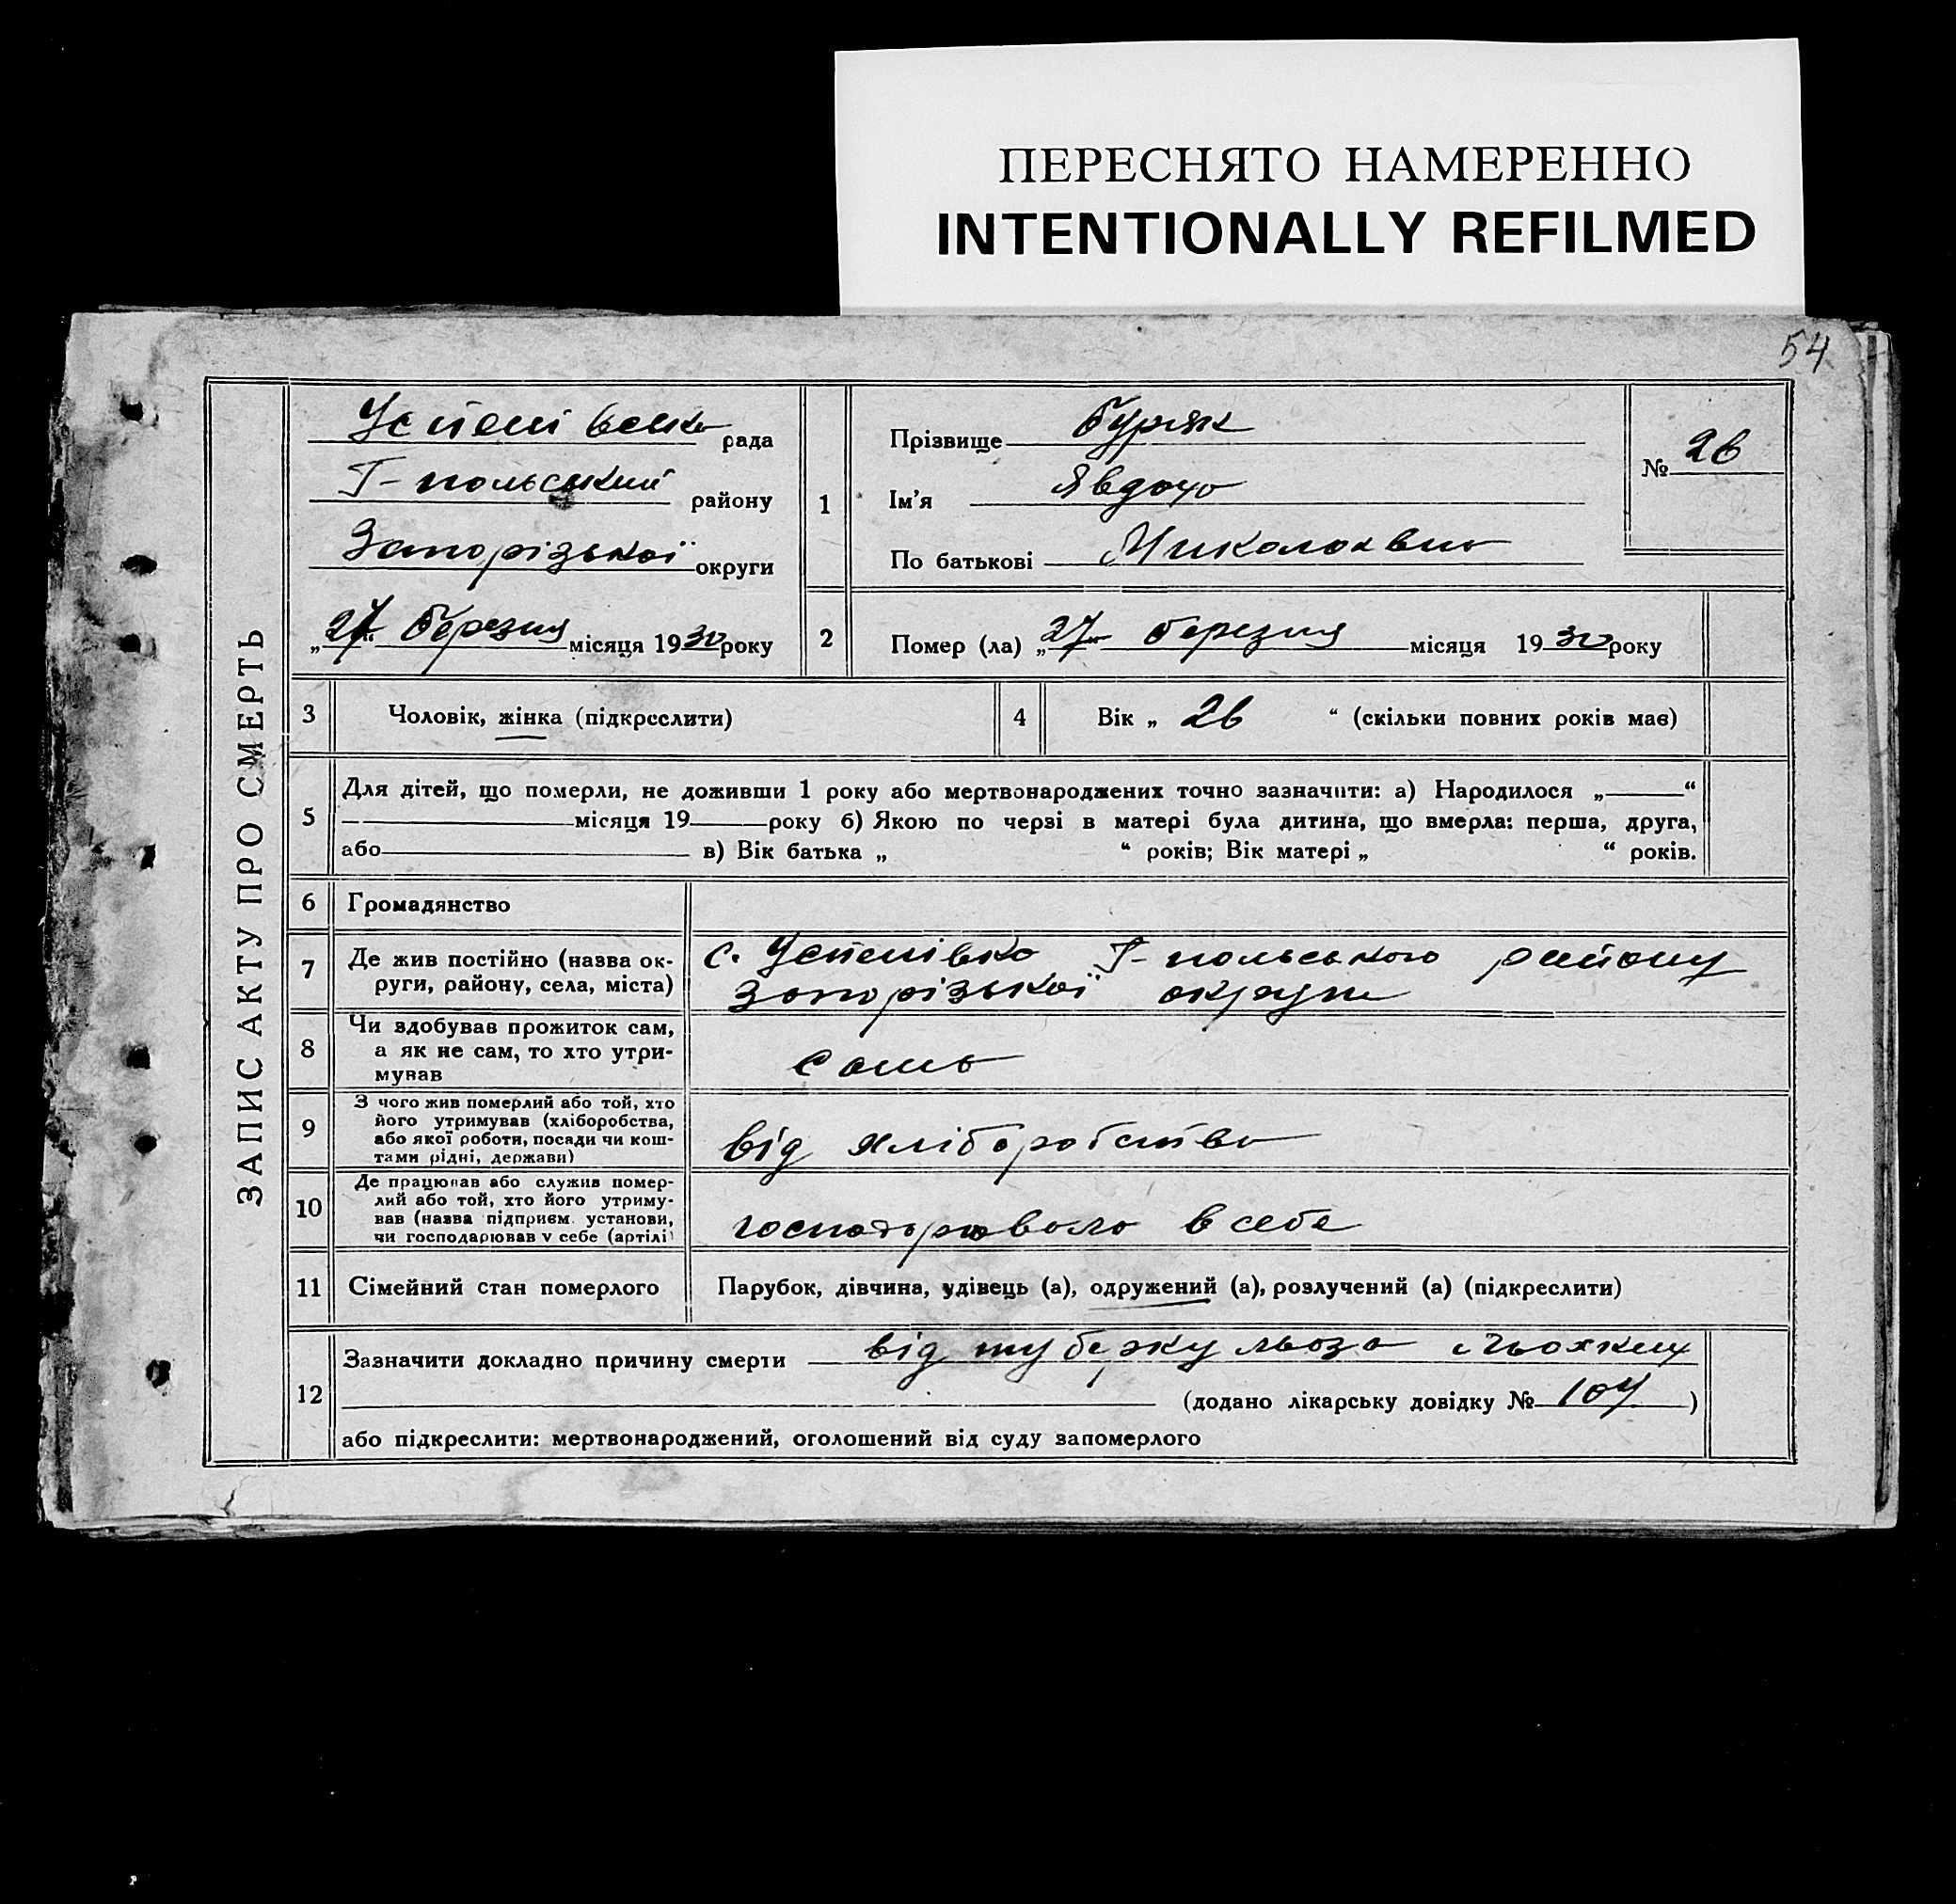 ПЕРЕСНЯТО НАМЕРЕННО
INTENTIONALLY REFILMED
54
ЗАПИС АКТУ ПРО СМЕРТЬ
Успенівська рада
Г-польський району
Запорізької округи
„27“ березня місяця 1930 року
1
Прізвище Буряк
Ім'я Явдоха
По батькові Миколаївна
№ 26
2
Помер (ла) „27“ березня місяця 1930 року
3 Чоловік, жінка (підкреслити)
4 Вік „ 26 “ (скільки повних років має)
5 Для дітей, що померли, не доживши 1 року або мертвонароджених точно зазначити: а) Народилося „ “
місяця 19 року б) Якою по черзі в матері була дитина, що вмерла: перша, друга,
або в) Вік батька „ “ років; Вік матері „ “ років.
6 Громадянство
7 Де жив постійно (назва ок-
руги, району, села, міста)
с. Успенівка Г-польського району
Запорізької округи
8 Чи здобував прожиток сам,
а як не сам, то хто утри-
мував
сама
9 З чого жив померлий або той, хто
його утримував (хліборобства,
або якої роботи, посади чи кош-
тами рідні, держави)
від хліборобства
10 Де працював або служив помер-
лий або той, хто його утриму-
вав (назва підприєм. установи,
чи господарював у себе (артілі)
господарювала в себе
11 Сімейний стан померлого
Парубок, дівчина, удівець (а), одружений (а), розлучений (а) (підкреслити)
12 Зазначити докладно причину смерти від туберкульоза льохких
(додано лікарську довідку № 104 )
або підкреслити: мертвонароджений, оголошений від суду запомерлого